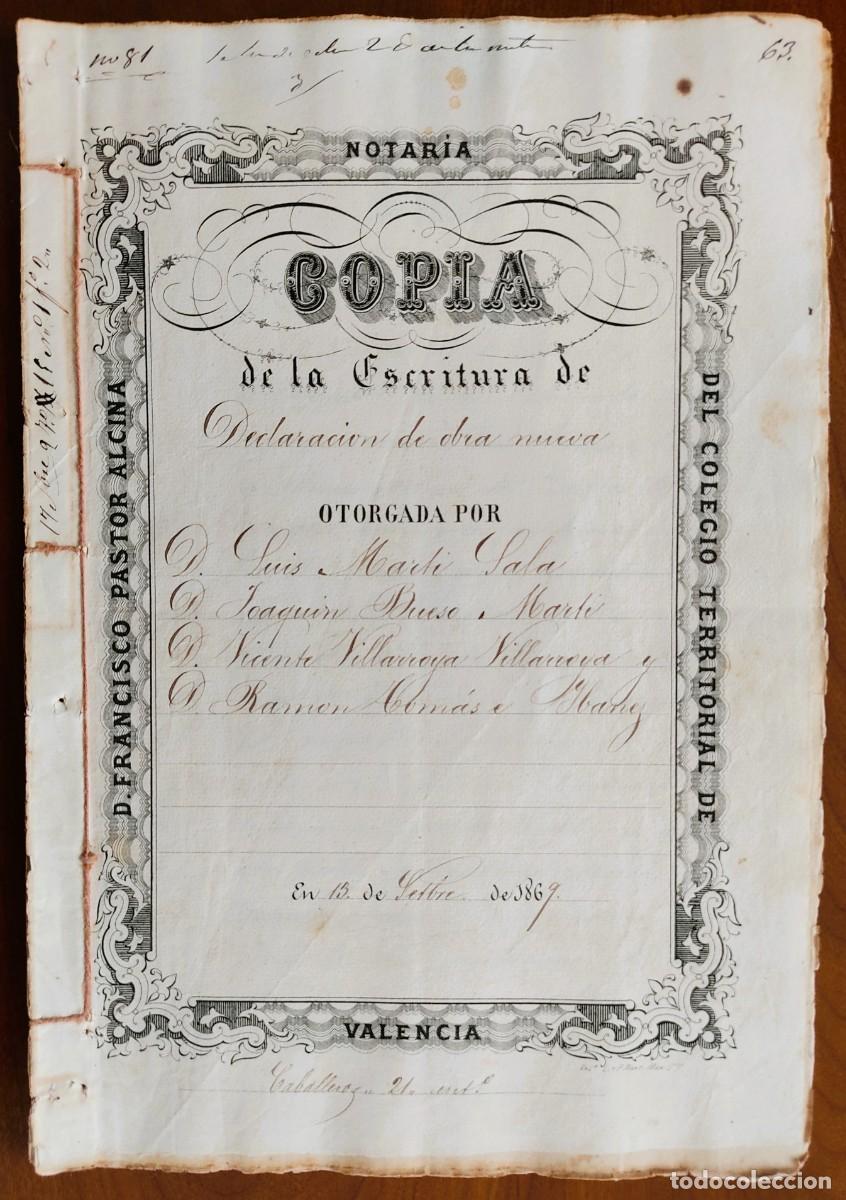 nº 81
63.
NOTARÍA
COPIA
de la Escritura de
Declaracion de obra nueva
OTORGADA POR
D. Luis Marti Sala
D. Joaquin Bueso Marti
D. Vicente Villarroya Villarroya y
D. Ramon Comás e Ybañez
En 13. de Setbre. de 1869.
D. FRANCISCO PASTOR ALCINA
DEL COLEGIO TERRITORIAL DE
VALENCIA
Caballeros 21
todocoleccion